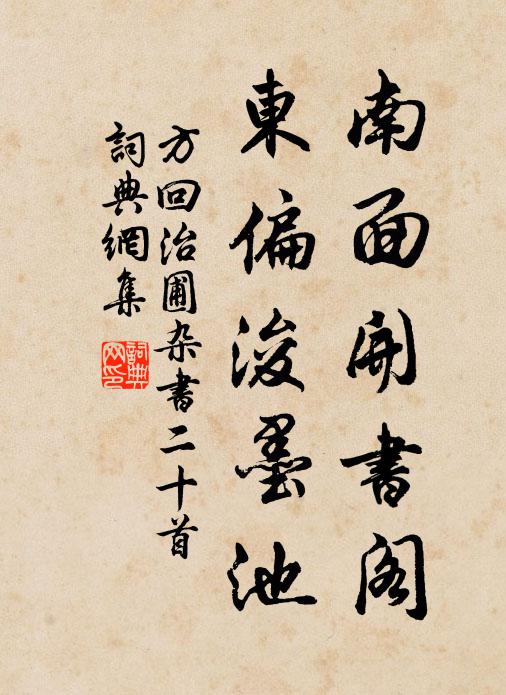 南面開書閣
東偏浚墨池
方回治圃杂書二十首
詞典網集
詞典网印